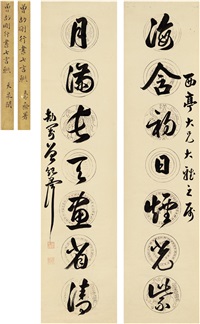 西亭大兄大雅之屬
海含初日煙光紫
月滿長天畫省清
劼剛曾紀澤
曾劼剛行書七言聯
曾劼剛行書七言聯